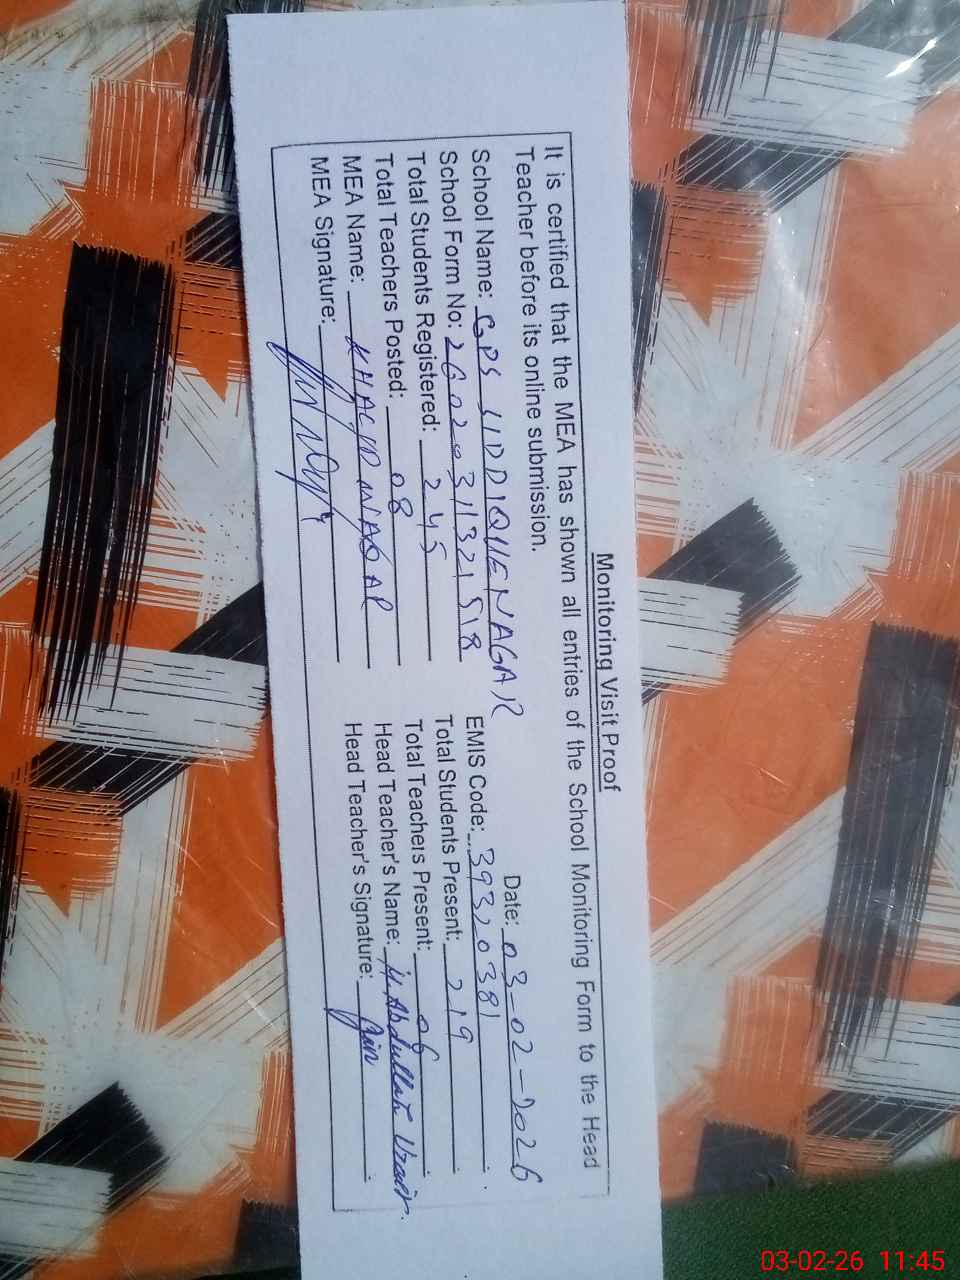 Monitoring Visit Proof
It is certified that the MEA has shown all entries of the School Monitoring Form to the Head
Teacher before its online submission.
Date: 03-02-2026
School Name: GPS SIDDIQUE NAGAR
EMIS Code: 39320381
School Form No: 26020311321518
Total Students Present: 219
Total Students Registered: 245
Total Teachers Present: 06
Total Teachers Posted: 08
Head Teacher's Name: M. Abdullah Uzair.
MEA Name: KHALID WAQAR
Head Teacher's Signature:
MEA Signature:
03-02-26 11:45